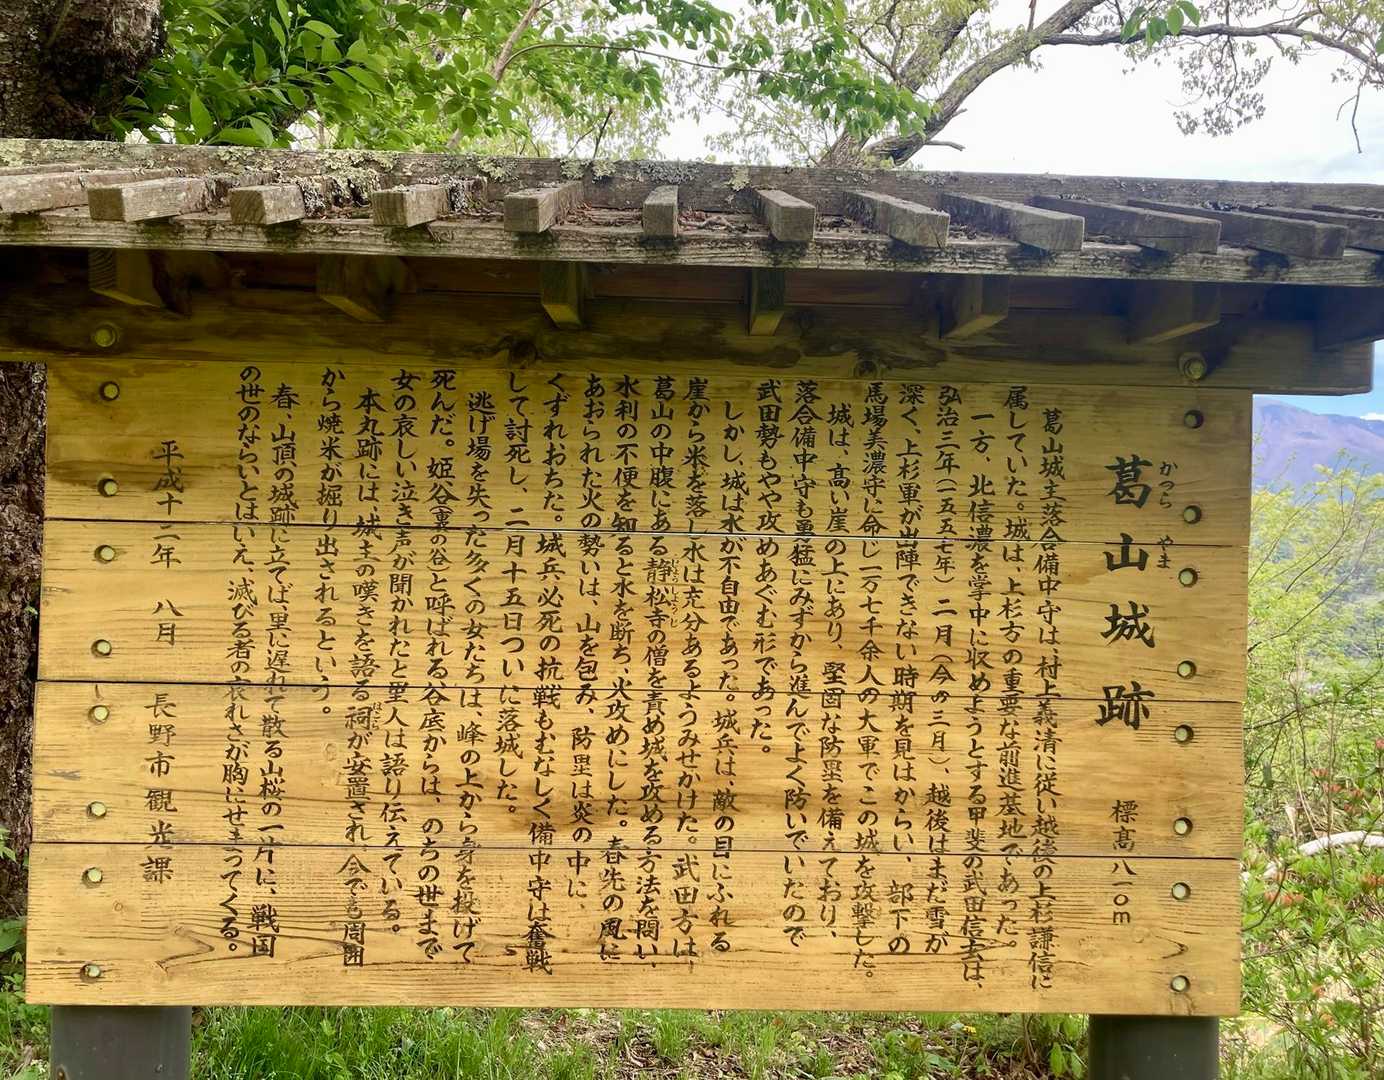 葛山城跡 標高八一〇m
かつら やま
葛山城主落合備中守は、村上義清に従い越後の上杉謙信に
属していた。城は、上杉方の重要な前進基地であった。
一方、北信濃を掌中に収めようとする甲斐の武田信玄は、
弘治三年(一五五七年)二月(今の三月)、越後はまだ雪が
深く、上杉軍が出陣できない時期を見はからい、部下の
馬場美濃守に命じ一万七千余人の大軍でこの城を攻撃した。
城は、高い崖の上にあり、堅固な防塁を備えており、
落合備中守も勇猛にみずから進んでよく防いでいたので
武田勢もやや攻めあぐむ形であった。
しかし、城は水が不自由であった。城兵は、敵の目にふれる
崖から米を落し水は充分あるようみせかけた。武田方は、
葛山の中腹にある静松寺の僧を責め城を攻める方法を問い、
じょうしょうじ
水利の不便を知ると水を断ち、火攻めにした。春先の風に
あおられた火の勢いは、山を包み、防塁は炎の中に、
くずれおちた。城兵必死の抗戦もむなしく備中守は奮戦
して討死し、二月十五日ついに落城した。
逃げ場を失った多くの女たちは、峰の上から身を投げて
死んだ。姫谷(裏の谷)と呼ばれる谷底からは、のちの世まで
女の哀しい泣き声が聞かれたと里人は語り伝えている。
本丸跡には、城主の嘆きを語る祠が安置され、今でも周囲
ほこら
から焼米が掘り出されるという。
春、山頂の城跡に立てば、里に遅れて散る山桜の一片に、戦国
の世のならいとはいえ、滅びる者の哀れさが胸にせまってくる。
平成十二年 八月 長野市観光課